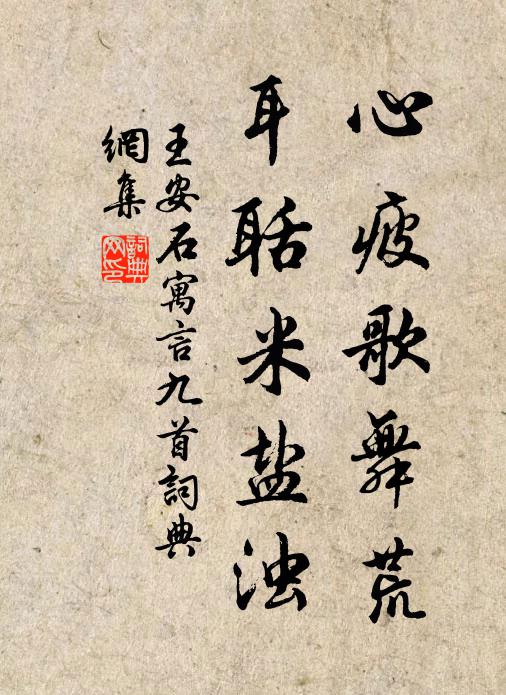 心疲歌舞荒
耳聒米盐浊
王安石寓言九首詞典
網集
詞典
网印